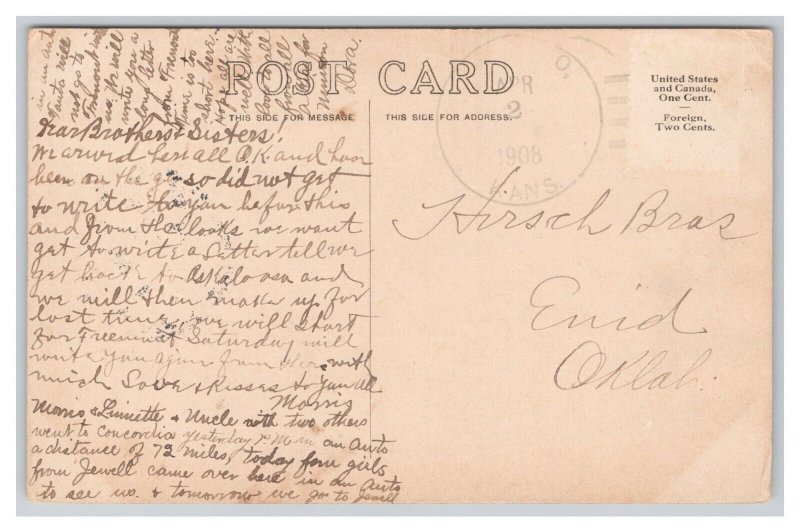 POST CARD
THIS SIDE FOR MESSAGE
THIS SIDE FOR ADDRESS.
United States
and Canada,
One Cent.
Foreign,
Two Cents.
APR
2
1908
KANS.
Hirsch Bros
Enid
Oklah.
Dear Brothers & Sisters!
We arived here all O.K. and have
been on the go so did not get
to write to you before this
and from the looks we wont
get to write a letter till we
get back to Oskaloosa and
we will then make up for
lost time, we will start
for Freemont Saturday will
write you again from there with
much Love & Kisses to you all
Morris
Morris & Linnette & Uncle with two others
went to Concordia yesterday P.M. in an Auto
a distance of 72 miles, today four girls
from Jewell came over here in an auto
to see us. & tomorrow we go to Jewell
in an auto
will
not go to
Fremont with
us. We will
write you a
long letter
from Fremont
time is too
short here.
Hope all are
well with
love to all
from all
Dora.